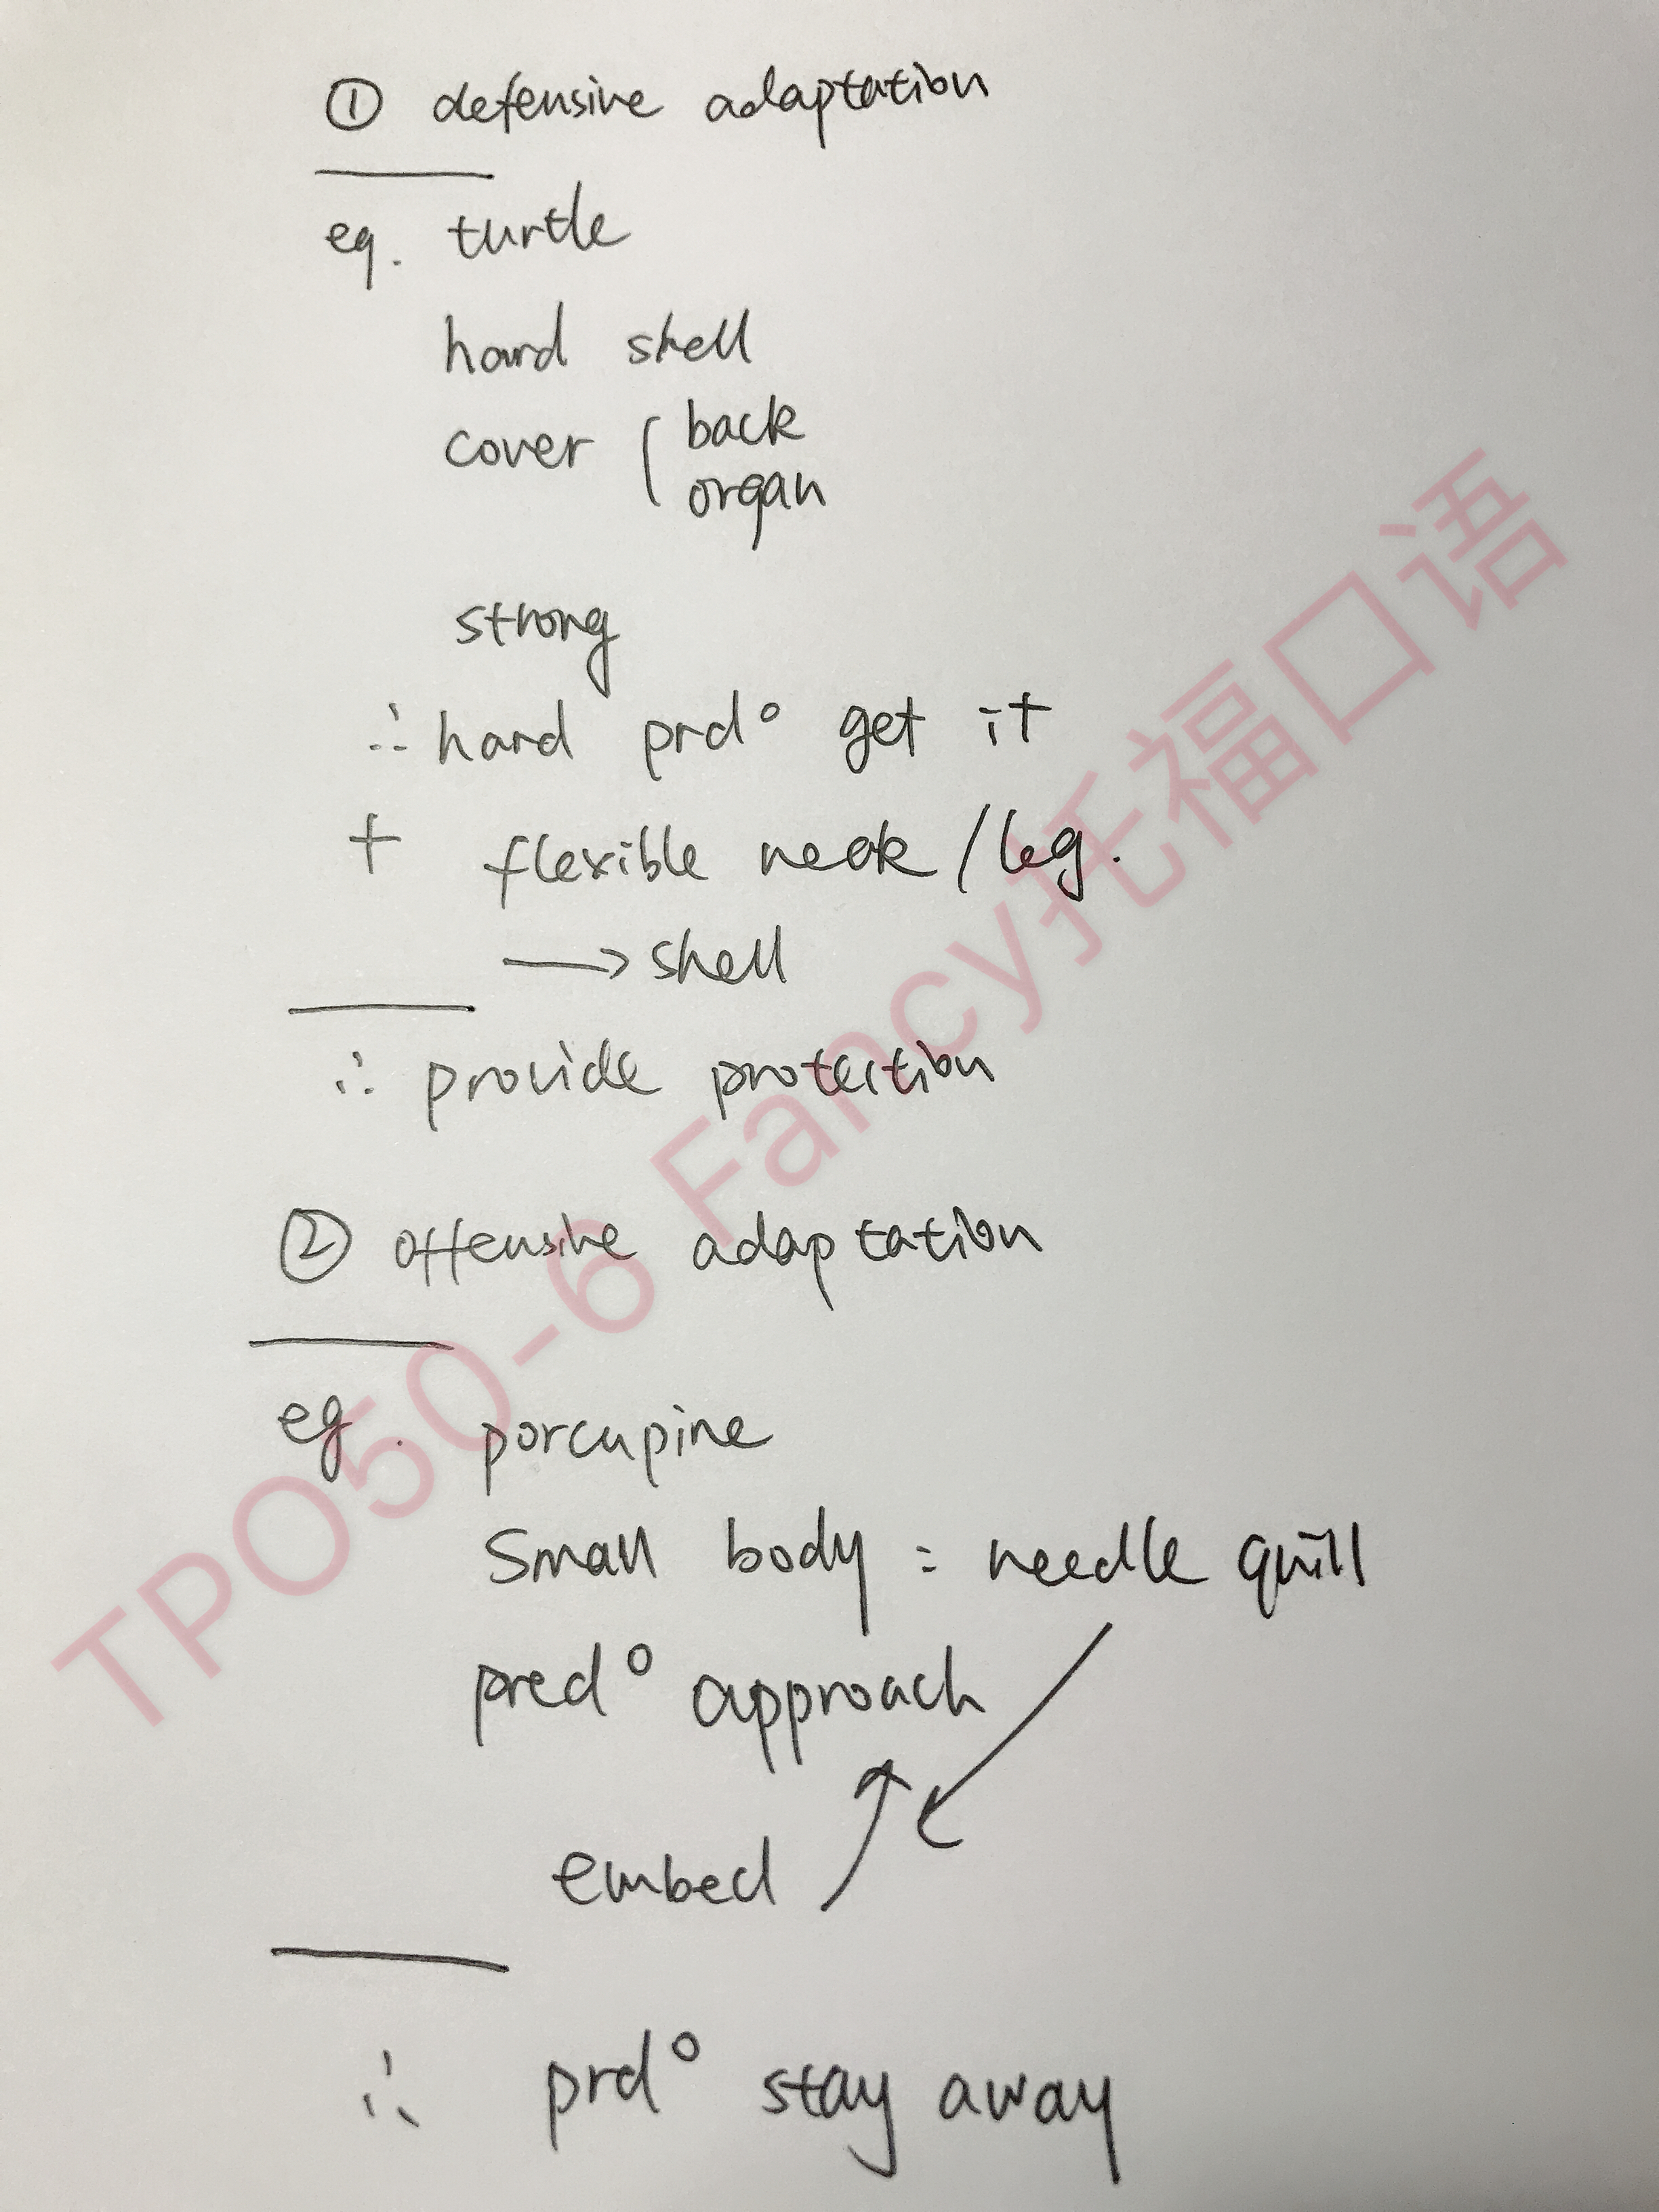 ① defensive adaptation
eg. turtle
hard shell
cover ( back
organ
strong
∴ hard prd° get it
+ flexible neck / leg.
→ shell
∴ provide protection
② offensive adaptation
eg. porcupine
small body = needle quill
pred° approach
embed
∴ prd° stay away
TPO50-6 Fancy托福口语